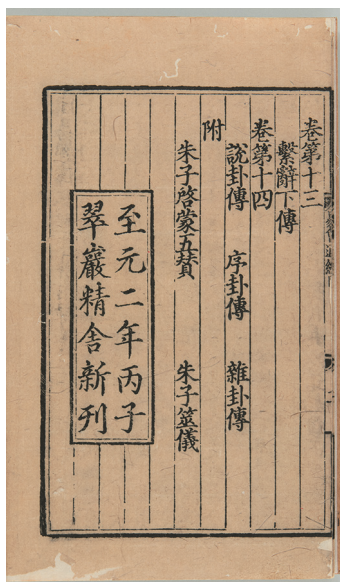 卷第十三
繫辭下傳
卷第十四
說卦傳 序卦傳 雜卦傳
附
朱子啓蒙五賛 朱子筮儀
至元二年丙子
翠巖精舍新刋